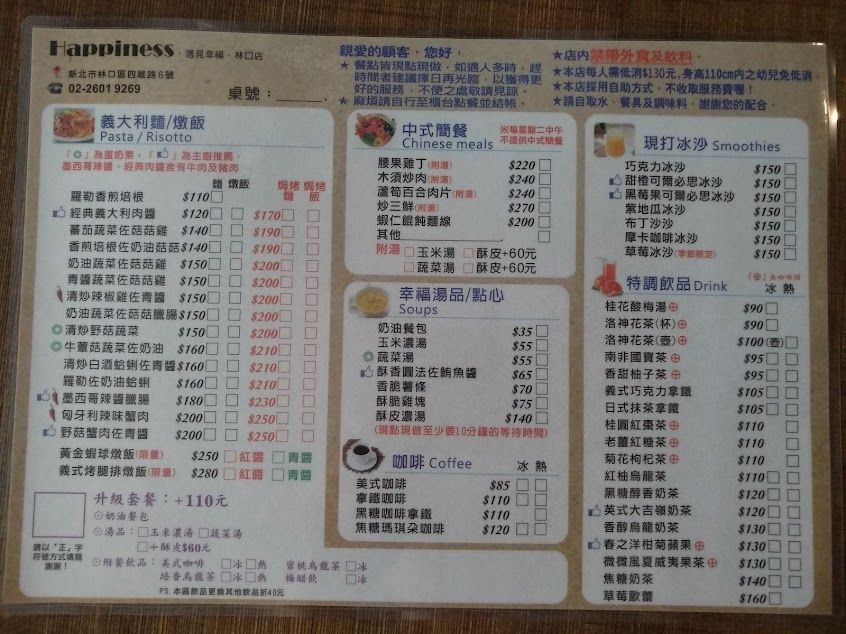 Happiness · 遇見幸福 · 林口店
新北市林口區四維路6號
02-2601 9269
桌號：______.
親愛的顧客，您好！
★ 餐點皆現點現做，如遇人多時，趕
時間者建議擇日再光臨，以獲得更
好的服務，不便之處敬請見諒。
★ 麻煩請自行至櫃台點餐並結帳。
★店內禁帶外食及飲料。
★本店每人需低消$130元,身高110cm內之幼兒免低消
★本店採用自助方式，不收取服務費喔！
★請自取水、餐具及調味料，謝謝您的配合。
義大利麵/燉飯
Pasta / Risotto
「◎」為蛋奶素、「👍」為主廚推薦。
墨西哥辣醬、經典肉醬皆有牛肉及豬肉
麵 燉飯 焗烤麵 焗烤飯
羅勒香煎培根 $110□
經典義大利肉醬 $120□ □ $170□ □
蕃茄蔬菜佐菇菇雞 $140□ □ $190□ □
香煎培根佐奶油菇菇 $140□ □ $190□ □
奶油蔬菜佐菇菇雞 $150□ □ $200□ □
青醬蔬菜佐菇菇雞 $150□ □ $200□ □
清炒辣椒雞佐青醬 $150□ □ $200□ □
奶油蔬菜佐菇菇臘腸 $150□ □ $200□ □
◎清炒野菇蔬菜 $150□ □ $200□ □
◎牛蕈菇蔬菜佐奶油 $160□ □ $210□ □
清炒白酒蛤蜊佐青醬 $160□ □ $210□ □
羅勒佐奶油蛤蜊 $160□ □ $210□ □
墨西哥辣醬臘腸 $180□ □ $230□ □
匈牙利辣味蟹肉 $200□ □ $250□ □
野菇蟹肉佐青醬 $200□ □ $250□ □
黃金蝦球燉飯(限量) $250 □紅醬 □青醬
義式烤腿排燉飯(限量) $280 □紅醬 □青醬
升級套餐：+110元
⊙奶油餐包
⊙湯品：□玉米濃湯 □蔬菜湯
□+酥皮$60元
⊙附餐飲品：美式咖啡 □冰□熱 蜜桃烏龍茶 □冰
培香烏龍茶 □冰□熱 梅醋飲 □冰
PS. 本區飲品更換其他飲品折40元
請以“正”字
符號方式填寫
謝謝！
中式簡餐
Chinese meals
※每星期二中午
不提供中式簡餐
腰果雞丁(附湯) $220□
木須炒肉(附湯) $240□
蘆筍百合肉片(附湯) $240□
炒三鮮(附湯) $270□
蝦仁餛飩麵線 $200□
其他________. □
附湯 □玉米湯 □酥皮+60元
□蔬菜湯 □酥皮+60元
幸福湯品/點心
Soups
奶油餐包 $35□
玉米濃湯 $55□
◎蔬菜湯 $55□
酥香圓法佐鮪魚醬 $65□
香脆薯條 $70□
酥脆雞塊 $75□
酥皮濃湯 $140□
(現點現做至少要10分鐘的等待時間)
咖啡 Coffee 冰 熱
美式咖啡 $85□ □
拿鐵咖啡 $110□ □
黑糖咖啡拿鐵 $110 □
焦糖瑪琪朵咖啡 $120□ □
現打冰沙 Smoothies
巧克力冰沙 $150□
甜橙可爾必思冰沙 $150□
黑莓果可爾必思冰沙 $150□
紫地瓜冰沙 $150□
布丁沙沙 $150□
摩卡咖啡冰沙 $150□
草莓冰沙(季節限定) $150□
特調飲品 Drink
「⊕」無咖啡因
冰 熱
桂花酸梅湯⊕ $90□
洛神花茶(杯)⊕ $90□
洛神花茶(壺)⊕ $100(壺)□
南非國寶茶⊕ $95□ □
香甜柚子茶⊕ $95□ □
義式巧克力拿鐵 $105□ □
日式抹茶拿鐵 $105□ □
桂圓紅棗茶⊕ $110 □
老薑紅糖茶⊕ $110 □
菊花枸杞茶⊕ $110 □
紅柚烏龍茶 $110□
黑糖醇香奶茶 $120□ □
英式大吉嶺奶茶 $120□ □
香醇烏龍奶茶 $130□ □
春之洋柑菊蘋果⊕ $130□ □
微微風夏威夷果茶⊕ $130□ □
焦糖奶茶 $140□ □
草莓歐蕾 $160□